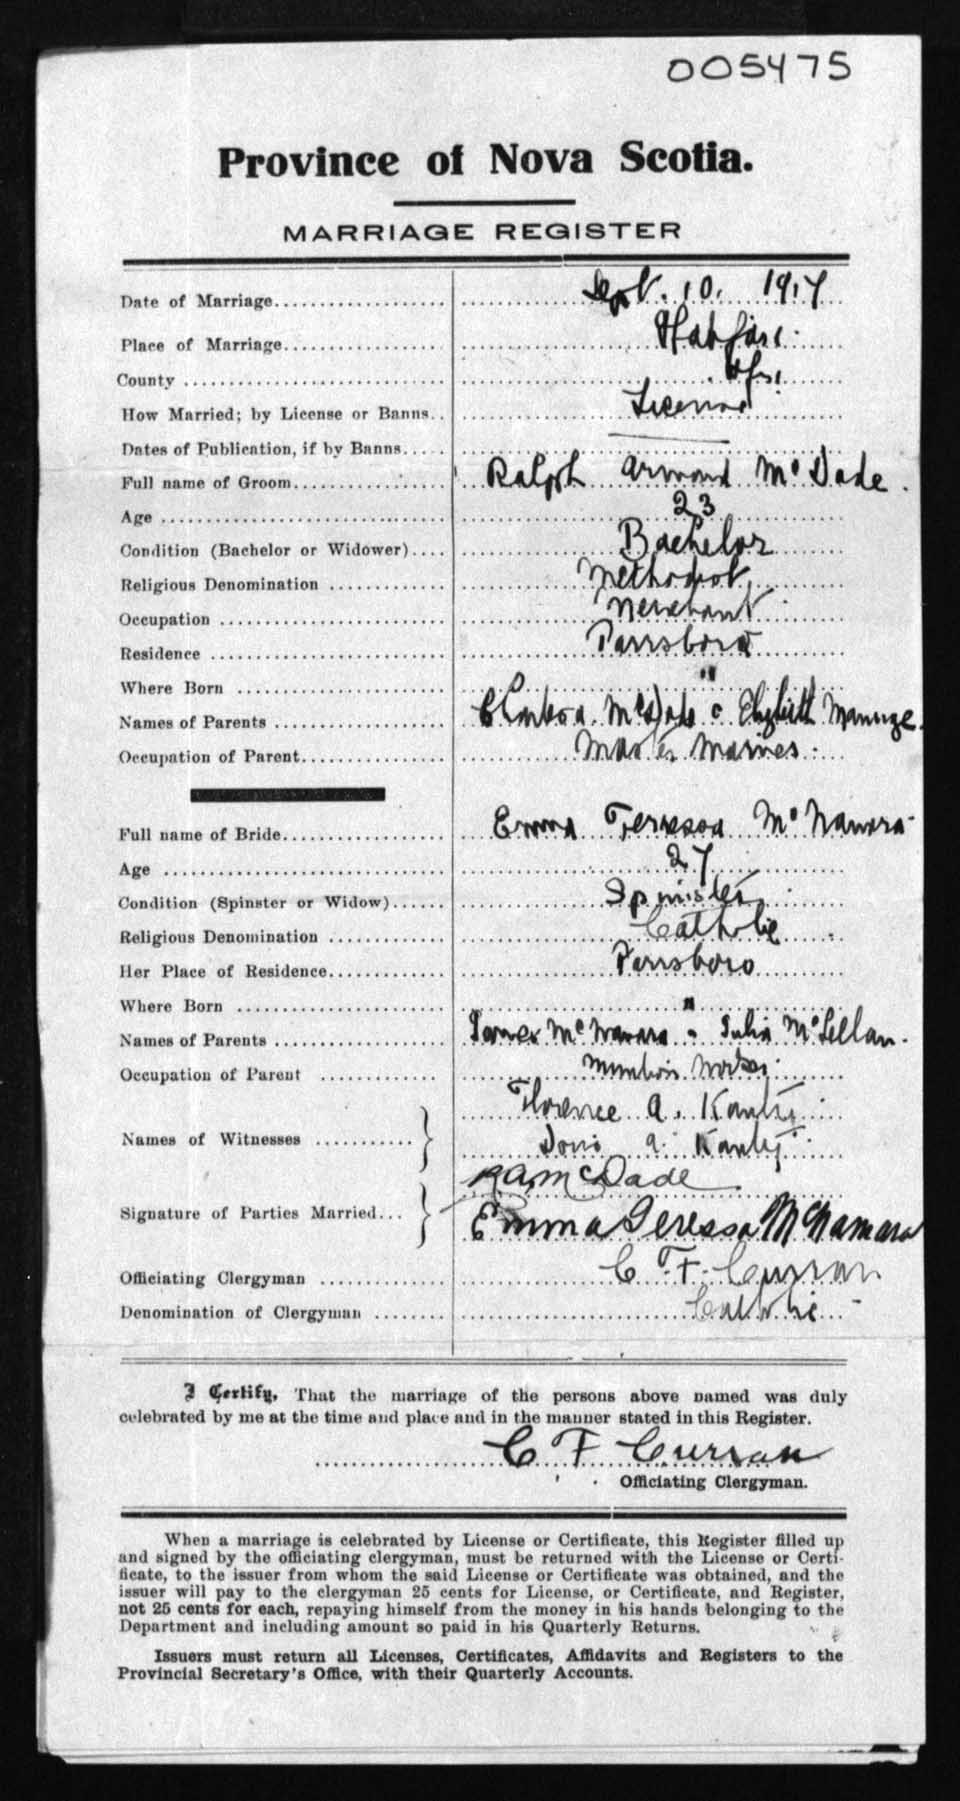 005475
Province of Nova Scotia.
MARRIAGE REGISTER
Date of Marriage Sept. 10. 1917
Place of Marriage Halifax
County Hfx.
How Married; by License or Banns License
Dates of Publication, if by Banns
Full name of Groom Ralph Armond McDade.
Age 23
Condition (Bachelor or Widower) Bachelor
Religious Denomination Methodist
Occupation Merchant
Residence Parrsboro
Where Born "
Names of Parents McDade Elizabeth
Occupation of Parent Master Mariner
Full name of Bride Emma Teressa McNamara
Age 27
Condition (Spinster or Widow) Spinster
Religious Denomination Catholic
Her Place of Residence Parrsboro
Where Born "
Names of Parents James McNamara Julia McLellan.
Occupation of Parent
Names of Witnesses Florence A.
A.
RA McDade
Signature of Parties Married Emma Teressa McNamara
Officiating Clergyman C. F. Curran
Denomination of Clergyman Catholic
I Certify, That the marriage of the persons above named was duly
celebrated by me at the time and place and in the manner stated in this Register.
C F Curran
Officiating Clergyman.
When a marriage is celebrated by License or Certificate, this Register filled up
and signed by the officiating clergyman, must be returned with the License or Certi-
ficate, to the issuer from whom the said License or Certificate was obtained, and the
issuer will pay to the clergyman 25 cents for License, or Certificate, and Register,
not 25 cents for each, repaying himself from the money in his hands belonging to the
Department and including amount so paid in his Quarterly Returns.
Issuers must return all Licenses, Certificates, Affidavits and Registers to the
Provincial Secretary's Office, with their Quarterly Accounts.